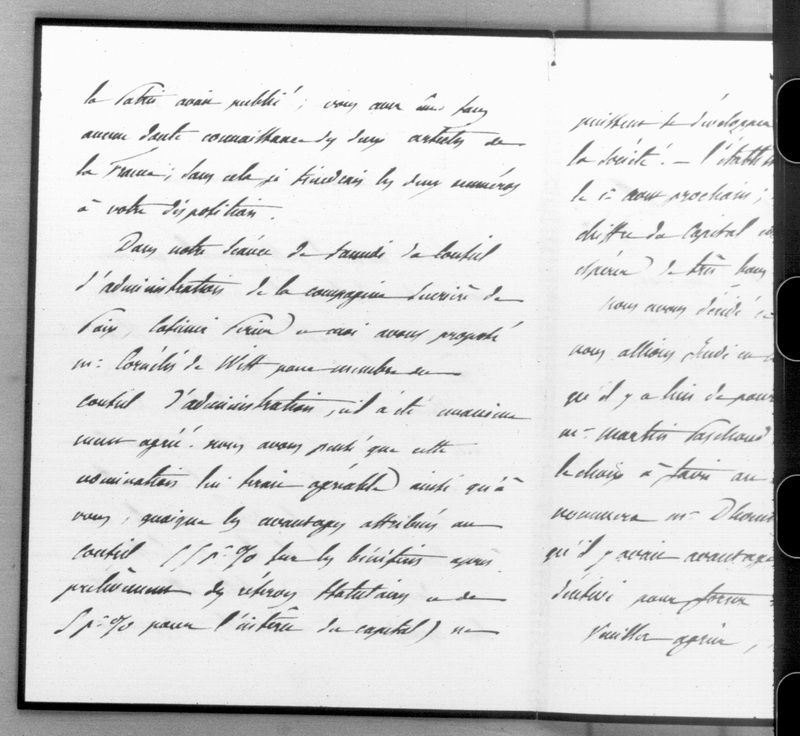 la Patrie avait publié; vous avez sans
aucun doute connaissance des deux articles de
la France; sans cela je tiendrais les deux numéros
à votre disposition.
Dans notre séance de Samedi du Conseil
d'administration de la compagnie
Casimir Périer et moi avons proposé
mr Cornélis de Witt pour membre du
conseil d'administration, il a été unanime
ment agréé. nous avons pensé que cette
nomination lui serait agréable ainsi qu'à
vous, quoique les avantages attribués au
conseil (5 p% sur les bénéfices après
prélèvement des réserves statutaires et de
5 p% pour l'intérêt du capital) ne
puissent se développer
la Société. — l'établ
le 1er août prochain;
chiffre du Capital
espérer de très bons
nous avons décidé
nous allions Jeudi
qu'il y a lieu de pour
mr Martin Paschoud
le choix à faire
nommera mr
qu'il y avait avantage
décisive pour
Veuillez agréer,